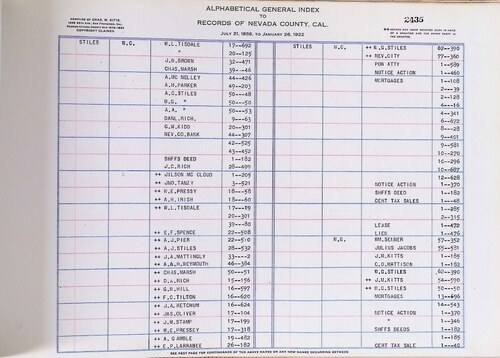 COMPILED BY CHAS. W. KITTS,
COPYRIGHT CLAIMED
ALPHABETICAL GENERAL INDEX
TO
RECORDS OF NEVADA COUNTY, CAL.
JULY 21, 1856, TO JANUARY 26, 1922
2435
STILES W.C. W.L.TISDALE 17--692
" 20--125
J.N.BROWN 32--471
CHAS.MARSH 39--46
A.MC NELLEY 44--426
A.H.PARKER 49--203
A.C.STILES 50--48
W.G. " 50--50
A.A. " 50--53
DANL.RICH, 9--63
G.W.KIDD 20--301
NEV.CO.BANK 44--307
42--525
43--452
SHFFS DEED 1--182
J.C.RICH 28--499
++ JILSON MC CLOUD 1--205
++ JNO.TANZY 3--521
++ H.E.PRESSY 18--58
++ A.H.IRISH 18--60
++ W.L.TISDALE 17--89
20--301
39--80
++ E.F.SPENCE 22--508
++ A.J.PIER 22--510
++ A.J.STILES 28--532
++ J.A.MATTINGLY 33---2
++ A.A.H.WEYMOUTH 46--384
++ CHAS.MARSH 50--51
++ D.A.RICH 15--156
++ G.H.HILL 16--597
++ F.G.TILTON 16--620
++ J.A.KETCHUM 16--624
++ JAS.OLIVER 17--104
++ J.M.STAMP 17--199
++ W.E.PRESSEY 17--318
++ A.GAMBLE 19--482
++ E.P.LARRABEE 26--182
STILES W.C. ++ W.G.STILES 82--390
++ NEV.CITY 77--360
POW ATTY 1--589
NOTICE ACTION 1--460
MORTGAGES 1--108
2---39
2--128
4---16
4--341
6--672
8---28
9--401
9--581
10--270
10--296
10--607
12--628
NOTICE ACTION 1--370
SHFFS DEED 1--182
CERT TAX SALES 1---48
1--285
2--315
LEASE 1--472
LIEN 1--476
W.G. WM.SEIBER 57--352
JULIUS JACOBS 55--581
J.W.KITTS 1--185
C.D.MATTISON 1--182
W.C.STILES 82--390
++ J.W.KITTS 54--590
++ W.C.STILES 50---50
MORTGAGES 13--696
14--543
NOTICE ACTION 1--370
" 1--346
SHFFS DEEDS 1--182
1--185
CERT TAX SALE 1---40
SEE NEXT PAGE FOR CONTINUANCE OF THE ABOVE NAMES OR ANY NEW NAMES OCCURRING BETWEEN